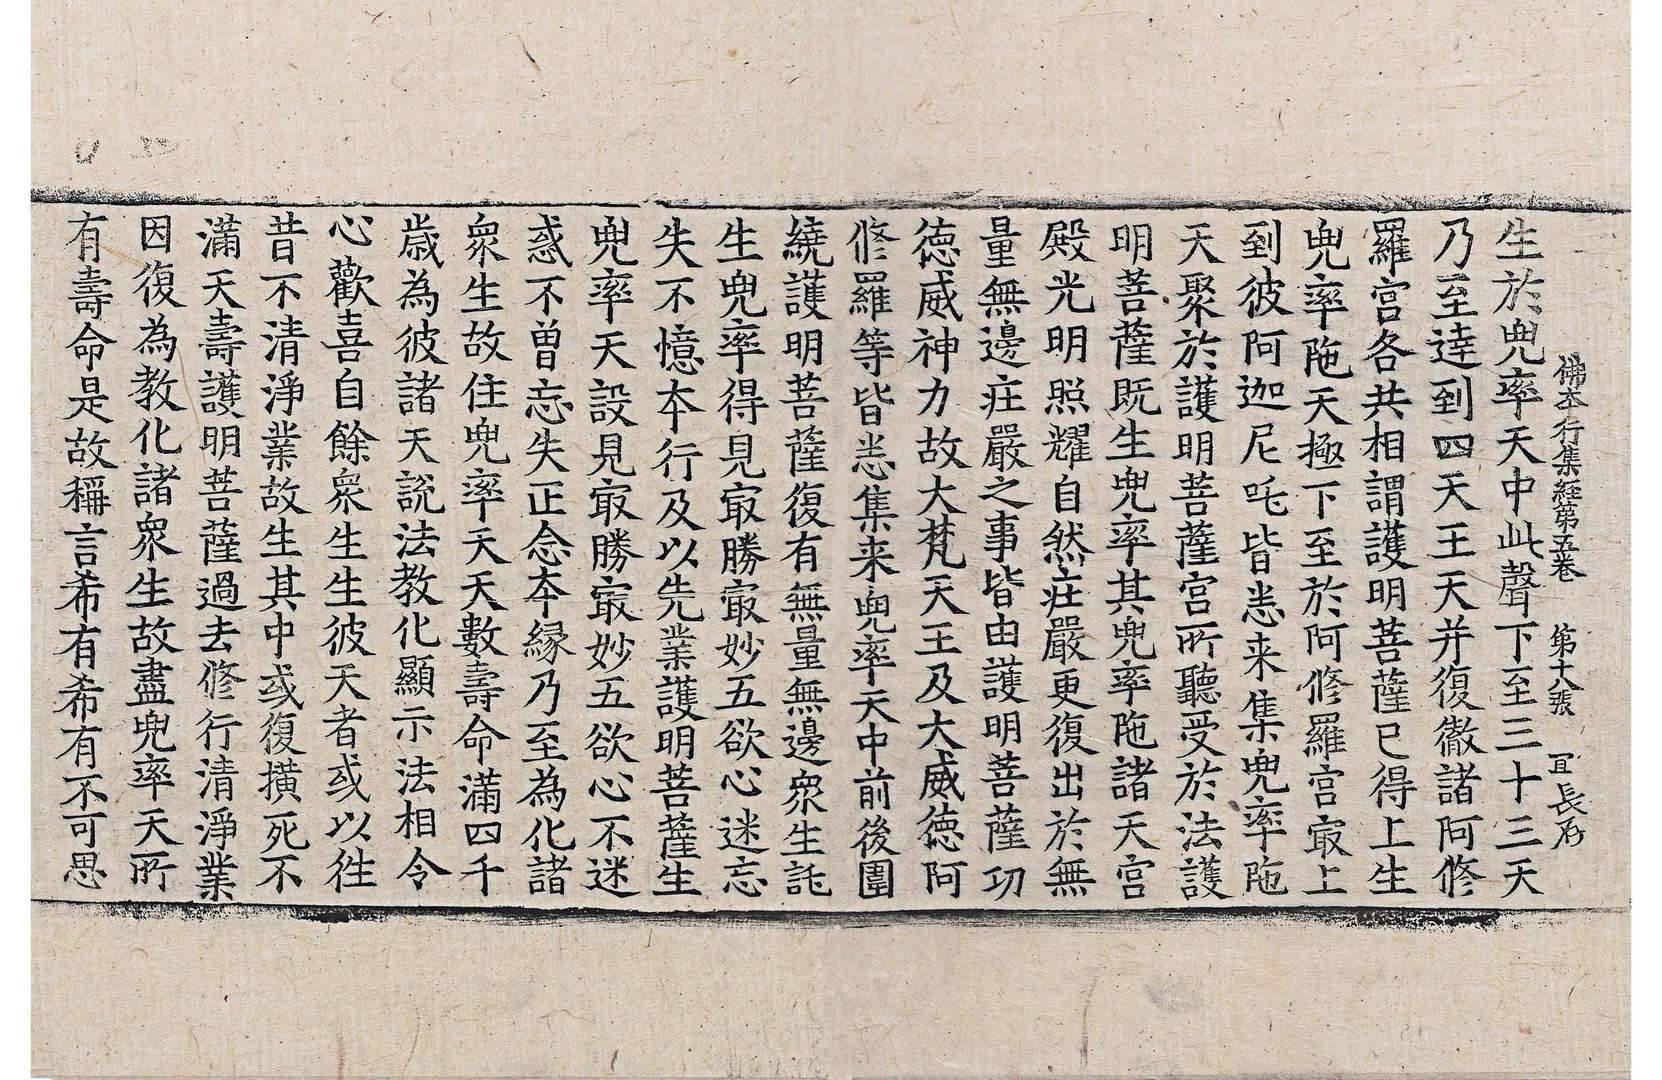 佛本行集経第五卷 第十八張 冝 長存
生於兜率天中此聲下至三十三天
乃至達到四天王天并復徹諸阿修
羅宮各共相謂護明菩薩已得上生
兜率陁天極下至於阿修羅宮㝡上
到彼阿迦尼吒皆悉来集兜率陁
天聚於護明菩薩宮所聽受於法護
明菩薩既生兜率其兜率陁諸天宮
殿光明照耀自然㽵嚴更復出於無
量無邊㽵嚴之事皆由護明菩薩功
徳威神力故大梵天王及大威徳阿
修羅等皆悉集来兜率天中前後圍
繞護明菩薩復有無量無邊衆生託
生兜率得見㝡勝㝡妙五欲心迷忘
失不憶本行及以先業護明菩薩生
兜率天設見㝡勝㝡妙五欲心不迷
惑不曾忘失正念本縁乃至為化諸
衆生故住兜率天天數壽命滿四千
歳為彼諸天説法教化顯示法相令
心歡喜自餘衆生生彼天者或以徃
昔不清淨業故生其中或復撗死不
滿天壽護明菩薩過去修行清淨業
因復為教化諸衆生故盡兜率天所
有壽命是故稱言希有希有不可思